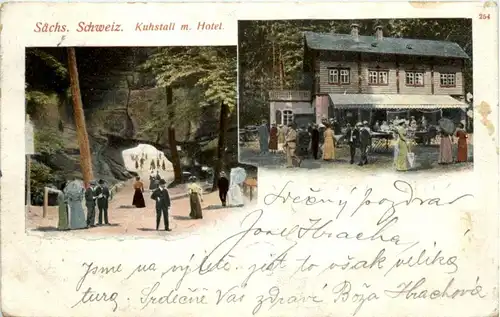 Sächs. Schweiz. Kuhstall m. Hotel.
254
Srdečný pozdrav
Josef Hracha
Jsme na výletě. jest to však veliká
túra. Srdečně Vás zdraví Boža Hrachová